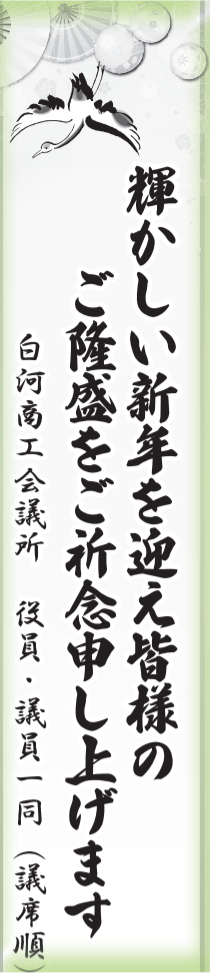 輝かしい新年を迎え皆様の
ご隆盛をご祈念申し上げます
白河商工会議所　役員・議員一同（議席順）